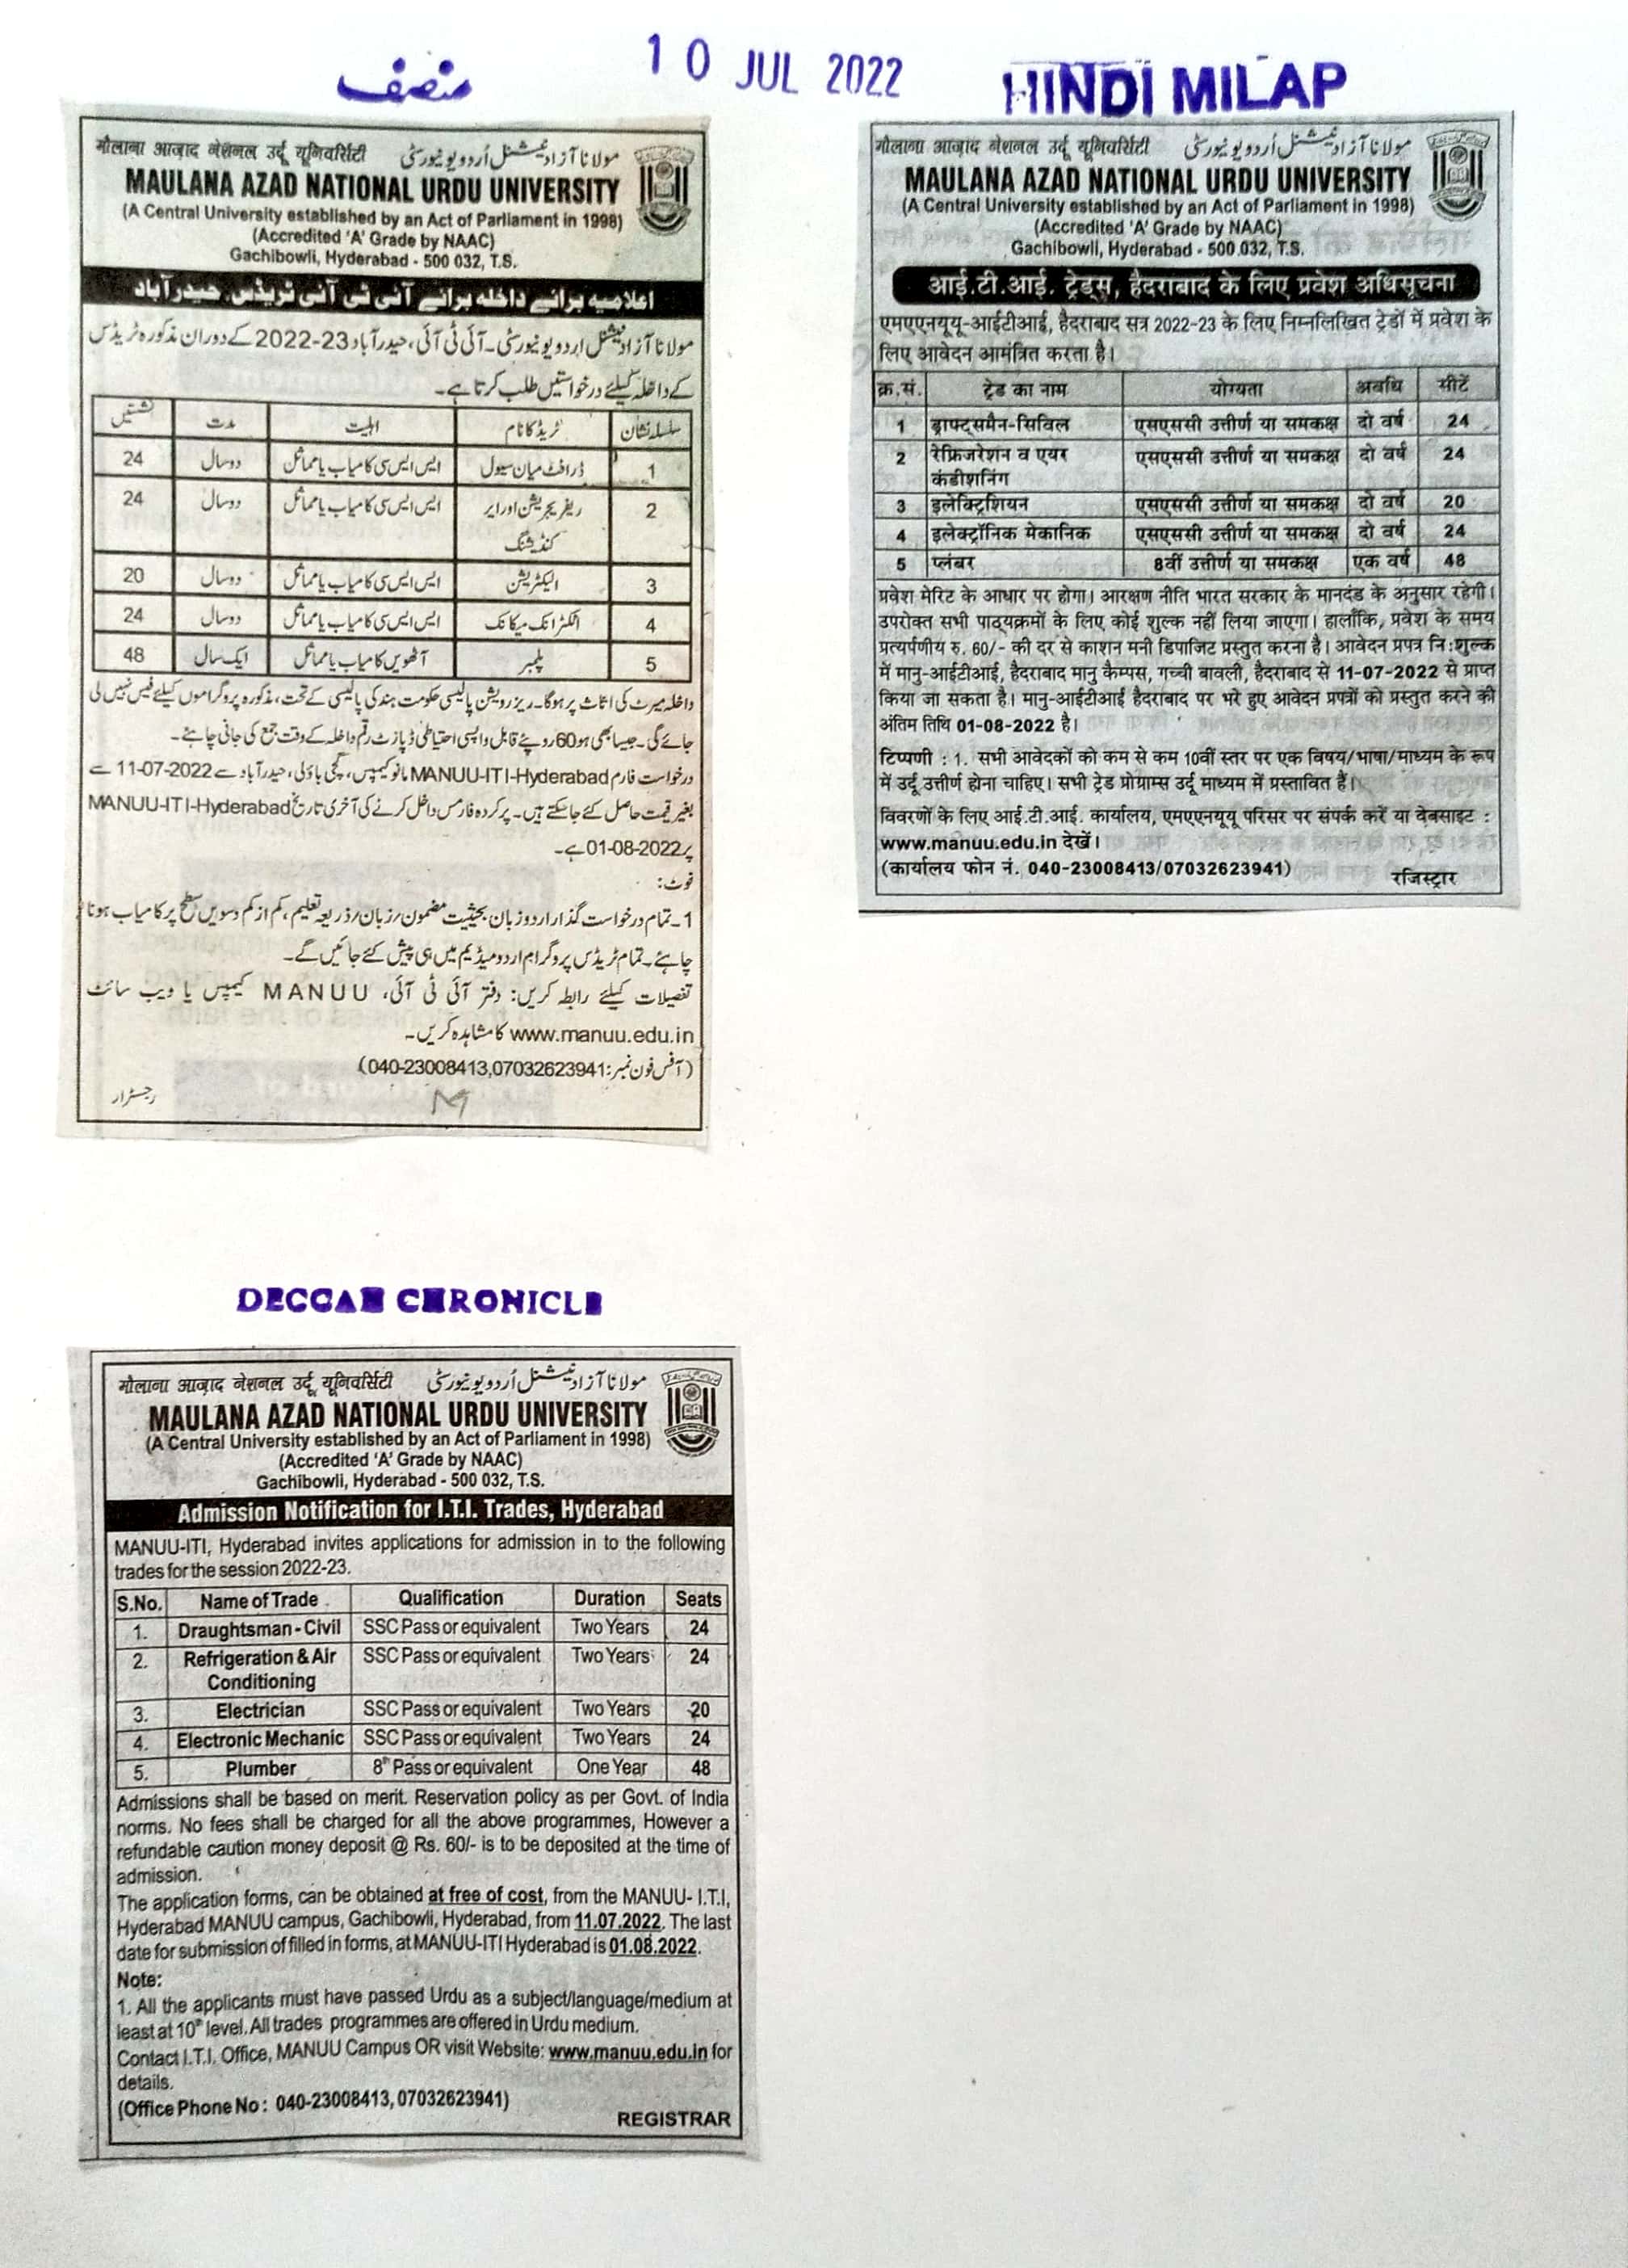 منصف
10 JUL 2022
HINDI MILAP
मौलाना आज़ाद नेशनल उर्दू यूनिवर्सिटी مولانا آزاد نیشنل اُردو یونیورسٹی
MAULANA AZAD NATIONAL URDU UNIVERSITY
(A Central University established by an Act of Parliament in 1998)
(Accredited 'A' Grade by NAAC)
Gachibowli, Hyderabad - 500 032, T.S.
اعلامیہ برائے داخلہ برائے آئی ٹی آئی ٹریڈس، حیدرآباد
مولانا آزاد نیشنل اردو یونیورسٹی۔ آئی ٹی آئی، حیدرآباد 2022-23 کے دوران مذکورہ ٹریڈس
کے داخلہ کیلئے درخواستیں طلب کرتا ہے۔
سلسلہ نشان ٹریڈ کا نام اہلیت مدت نشستیں
1 ڈرافٹ میان سیول ایس ایس سی کامیاب یا مماثل دو سال 24
2 ریفریجریشن اور ایر ایس ایس سی کامیاب یا مماثل دو سال 24
کنڈیشنگ
3 الیکٹریشن ایس ایس سی کامیاب یا مماثل دو سال 20
4 الکٹرانک میکانک ایس ایس سی کامیاب یا مماثل دو سال 24
5 پلمبر آٹھویں کامیاب یا مماثل ایک سال 48
داخلہ میرٹ کی اثاث پر ہوگا۔ ریزرویشن پالیسی حکومت ہند کی پالیسی کے تحت، مذکورہ پروگراموں کیلئے فیس نہیں لی
جائے گی۔ جیسا بھی ہو 60 روپئے قابل واپسی احتیاطی ڈپازٹ رقم داخلہ کے وقت جمع کی جانی چاہئے۔
درخواست فارم MANUU-ITI-Hyderabad مانو کیمپس، گچی باؤلی، حیدرآباد سے 11-07-2022 سے
بغیر قیمت حاصل کئے جاسکتے ہیں۔ پر کردہ فارمس داخل کرنے کی آخری تاریخ MANUU-ITI-Hyderabad
پر 01-08-2022 ہے۔
نوٹ:
1۔ تمام درخواست گذار اردو زبان بحیثیت مضمون/زبان/ذریعہ تعلیم، کم از کم دسویں سطح پر کامیاب ہونا
چاہئے۔ تمام ٹریڈس پروگرام اردو میڈیم میں ہی پیش کئے جائیں گے۔
تفصیلات کیلئے رابطہ کریں: دفتر آئی ٹی آئی، MANUU کیمپس یا ویب سائٹ
www.manuu.edu.in کا مشاہدہ کریں۔
(آفس فون نمبر: 040-23008413,07032623941)
رجسٹرار
मौलाना आज़ाद नेशनल उर्दू यूनिवर्सिटी مولانا آزاد نیشنل اُردو یونیورسٹی
MAULANA AZAD NATIONAL URDU UNIVERSITY
(A Central University established by an Act of Parliament in 1998)
(Accredited 'A' Grade by NAAC)
Gachibowli, Hyderabad - 500 032, T.S.
आई.टी.आई. ट्रेड्स, हैदराबाद के लिए प्रवेश अधिसूचना
एमएएनयूयू-आईटीआई, हैदराबाद सत्र 2022-23 के लिए निम्नलिखित ट्रेडों में प्रवेश के
लिए आवेदन आमंत्रित करता है।
क्र.सं. ट्रेड का नाम योग्यता अवधि सीटें
1 ड्राफ्ट्समैन-सिविल एसएससी उत्तीर्ण या समकक्ष दो वर्ष 24
2 रेफ्रिजरेशन व एयर एसएससी उत्तीर्ण या समकक्ष दो वर्ष 24
कंडीशनिंग
3 इलेक्ट्रिशियन एसएससी उत्तीर्ण या समकक्ष दो वर्ष 20
4 इलेक्ट्रॉनिक मेकानिक एसएससी उत्तीर्ण या समकक्ष दो वर्ष 24
5 प्लंबर 8वीं उत्तीर्ण या समकक्ष एक वर्ष 48
प्रवेश मेरिट के आधार पर होगा। आरक्षण नीति भारत सरकार के मानदंड के अनुसार रहेगी।
उपरोक्त सभी पाठ्यक्रमों के लिए कोई शुल्क नहीं लिया जाएगा। हालाँकि, प्रवेश के समय
प्रत्यर्पणीय रु. 60/- की दर से काशन मनी डिपाजिट प्रस्तुत करना है। आवेदन प्रपत्र नि:शुल्क
में मानु-आईटीआई, हैदराबाद मानु कैम्पस, गच्ची बावली, हैदराबाद से 11-07-2022 से प्राप्त
किया जा सकता है। मानु-आईटीआई हैदराबाद पर भरे हुए आवेदन प्रपत्रों को प्रस्तुत करने की
अंतिम तिथि 01-08-2022 है।
टिप्पणी : 1. सभी आवेदकों को कम से कम 10वीं स्तर पर एक विषय/भाषा/माध्यम के रूप
में उर्दू उत्तीर्ण होना चाहिए। सभी ट्रेड प्रोग्राम्स उर्दू माध्यम में प्रस्तावित हैं।
विवरणों के लिए आई.टी.आई. कार्यालय, एमएएनयूयू परिसर पर संपर्क करें या वेबसाइट :
www.manuu.edu.in देखें।
(कार्यालय फोन नं. 040-23008413/07032623941)
रजिस्ट्रार
DECCAN CHRONICLE
मौलाना आज़ाद नेशनल उर्दू यूनिवर्सिटी مولانا آزاد نیشنل اُردو یونیورسٹی
MAULANA AZAD NATIONAL URDU UNIVERSITY
(A Central University established by an Act of Parliament in 1998)
(Accredited 'A' Grade by NAAC)
Gachibowli, Hyderabad - 500 032, T.S.
Admission Notification for I.T.I. Trades, Hyderabad
MANUU-ITI, Hyderabad invites applications for admission in to the following
trades for the session 2022-23.
S.No. Name of Trade Qualification Duration Seats
1. Draughtsman - Civil SSC Pass or equivalent Two Years 24
2. Refrigeration & Air SSC Pass or equivalent Two Years 24
Conditioning
3. Electrician SSC Pass or equivalent Two Years 20
4. Electronic Mechanic SSC Pass or equivalent Two Years 24
5. Plumber 8th Pass or equivalent One Year 48
Admissions shall be based on merit. Reservation policy as per Govt. of India
norms. No fees shall be charged for all the above programmes, However a
refundable caution money deposit @ Rs. 60/- is to be deposited at the time of
admission.
The application forms, can be obtained at free of cost, from the MANUU- I.T.I,
Hyderabad MANUU campus, Gachibowli, Hyderabad, from 11.07.2022. The last
date for submission of filled in forms, at MANUU-ITI Hyderabad is 01.08.2022.
Note:
1. All the applicants must have passed Urdu as a subject/language/medium at
least at 10th level. All trades programmes are offered in Urdu medium.
Contact I.T.I. Office, MANUU Campus OR visit Website: www.manuu.edu.in for
details.
(Office Phone No : 040-23008413, 07032623941)
REGISTRAR